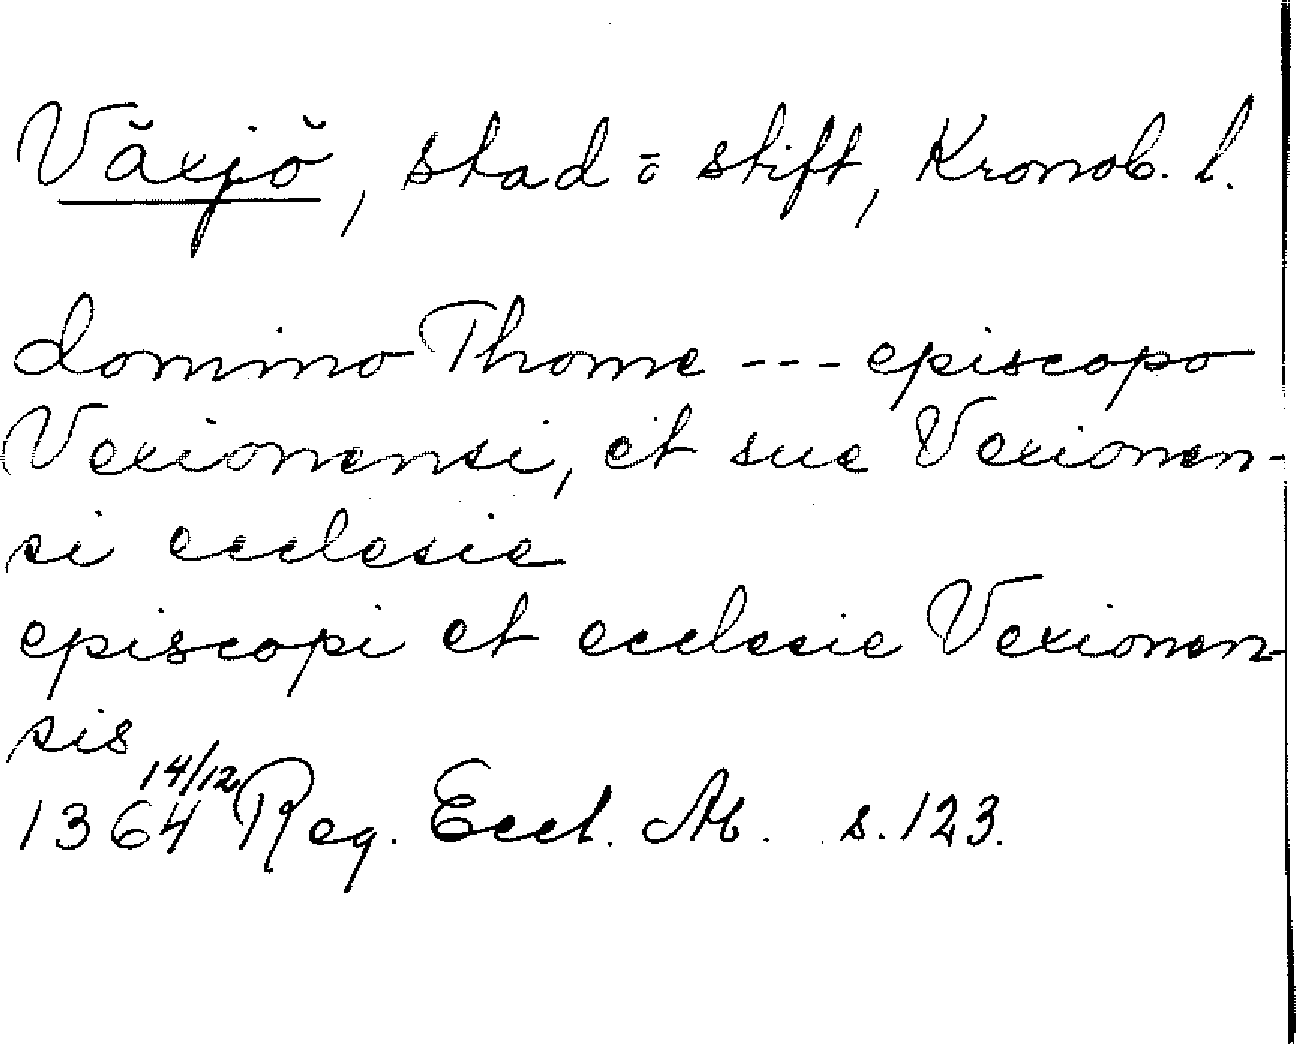 Växjö, stad o stift, Kronob. l.
domino Thome --- episcopo
Vexionensi, et sue Vexionen-
si ecclesie
episcopi et ecclesie Vexionen-
sis
1364 14/12 Reg. Eccl. M. s. 123.